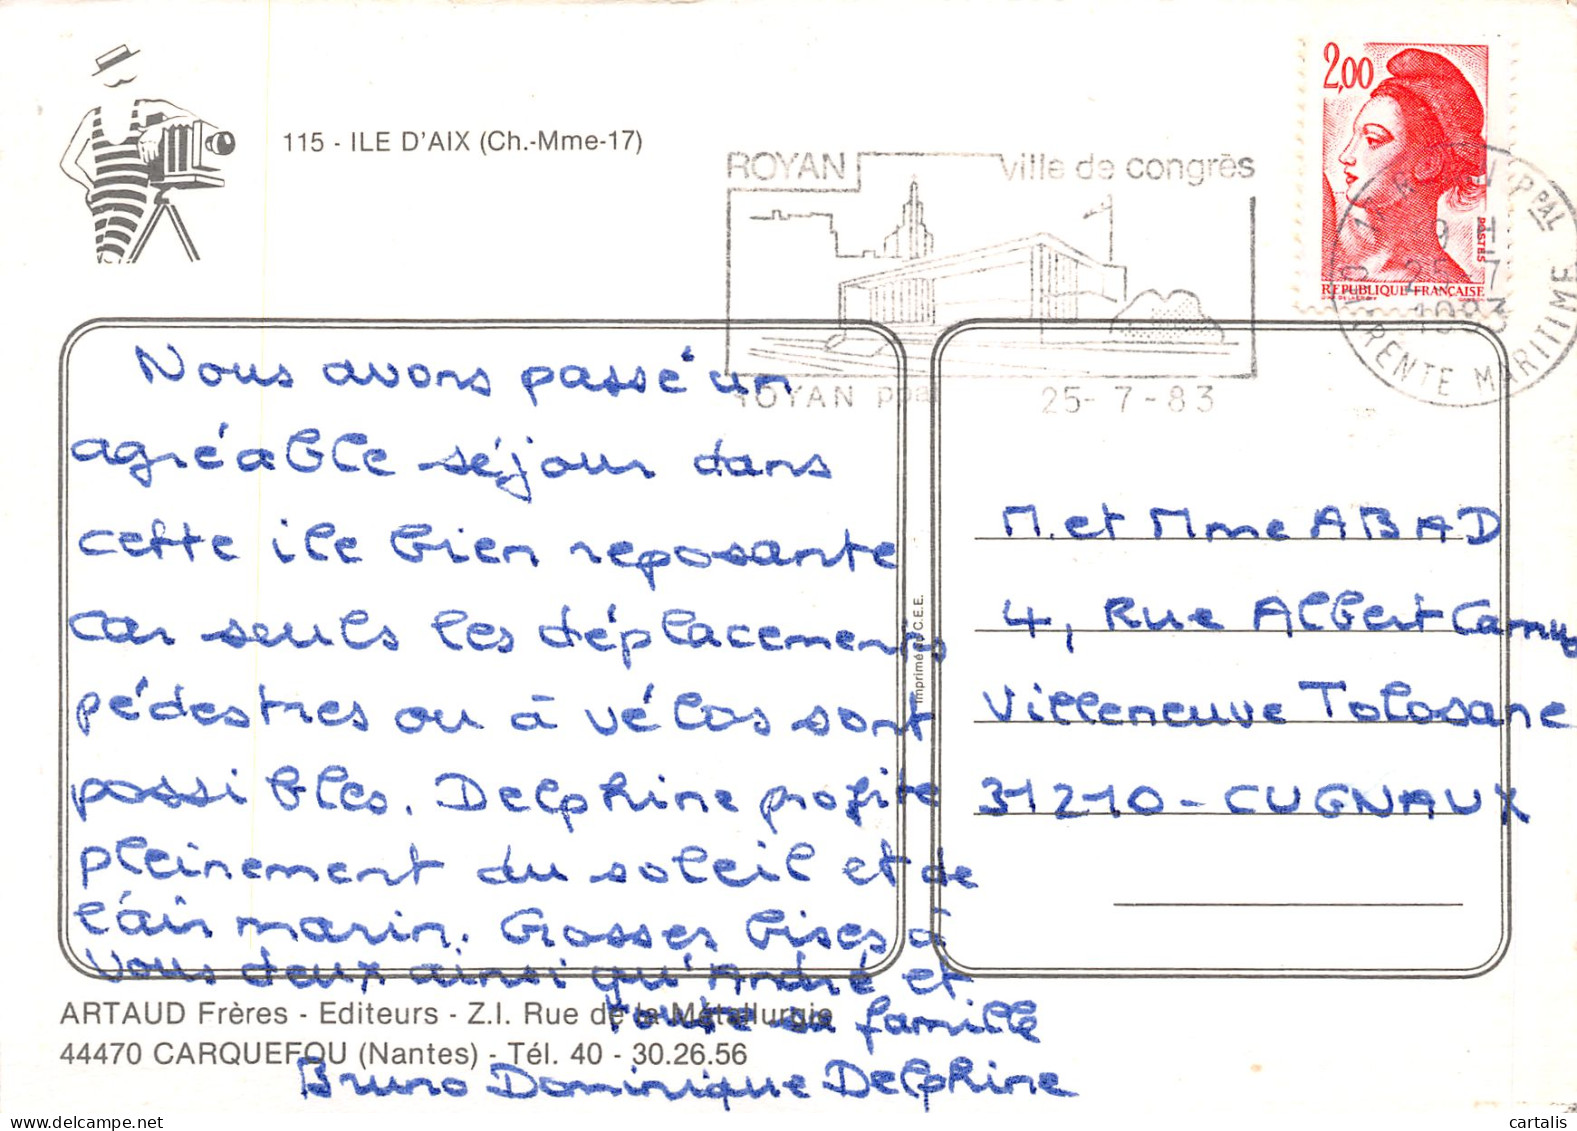 115 - ILE D'AIX (Ch.-Mme-17)
ROYAN ville de congrès
2,00
POSTES
REPUBLIQUE FRANÇAISE
9 H
25 7
1983
CHARENTE MARITIME
ROYAN ppal 25-7-83
Nous avons passé un
agréable séjour dans
cette ile bien reposante
car seuls les déplacements
pédestres ou à vélos sont
possibles. Delphine profite
pleinement du soleil et de
l'air marin. Grosses bises à
vous deux ainsi qu'André et
toute sa famille
Bruno Dominique Delphine
Imprimé en C.E.E.
M. et Mme ABAD
4, Rue Albert Camus
Villeneuve Tolosane
31210 - CUGNAUX
ARTAUD Frères - Editeurs - Z.I. Rue de la Métallurgie
44470 CARQUEFOU (Nantes) - Tél. 40 - 30.26.56
cartalis